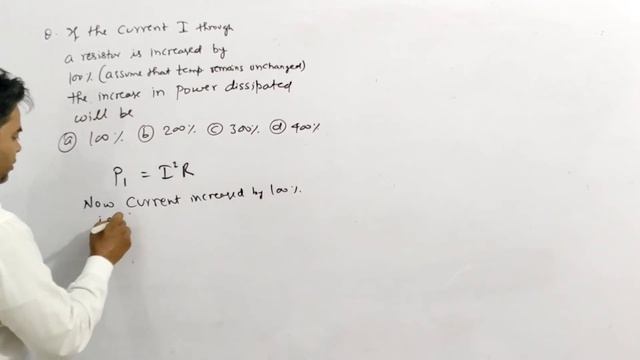 Q. If the current I through
a resistor is increased by
100% (assume that temp remains unchanged)
the increase in power dissipated
will be
(a) 100% (b) 200% (c) 300% (d) 400%
P₁ = I²R
Now current increased by 100%.